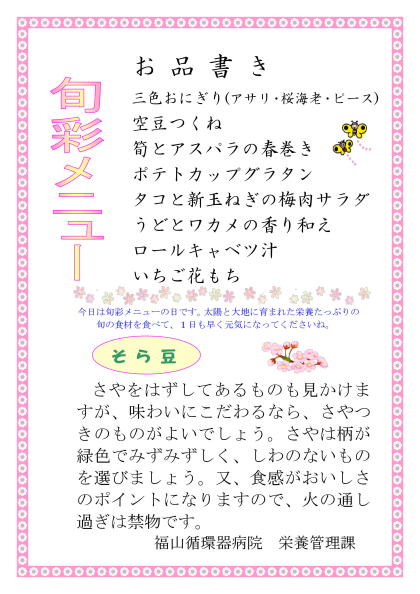 旬彩メニュー
お品書き
三色おにぎり(アサリ・桜海老・ピース)
空豆つくね
筍とアスパラの春巻き
ポテトカップグラタン
タコと新玉ねぎの梅肉サラダ
うどとワカメの香り和え
ロールキャベツ汁
いちご花もち
今日は旬彩メニューの日です。太陽と大地に育まれた栄養たっぷりの
旬の食材を食べて、１日も早く元気になってくださいね。
そら豆
さやをはずしてあるものも見かけま
すが、味わいにこだわるなら、さやつ
きのものがよいでしょう。さやは柄が
緑色でみずみずしく、しわのないもの
を選びましょう。又、食感がおいしさ
のポイントになりますので、火の通し
過ぎは禁物です。
福山循環器病院　栄養管理課